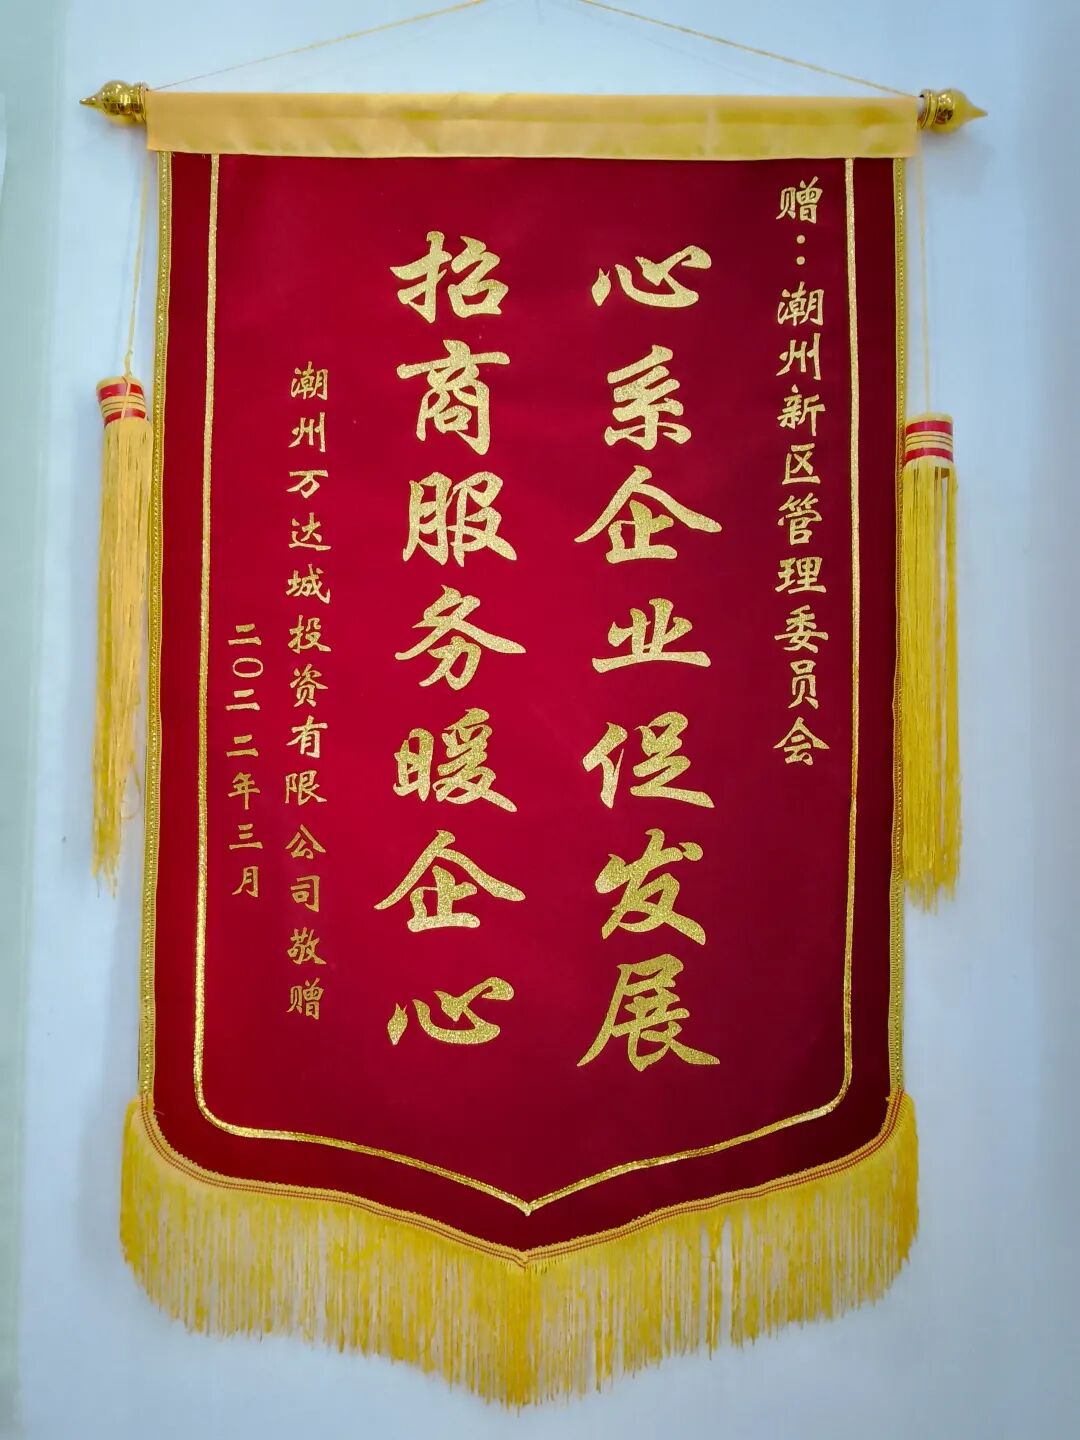 赠：潮州新区管理委员会
心系企业促发展
招商服务暖企心
潮州万达城投资有限公司敬赠
二〇二二年三月